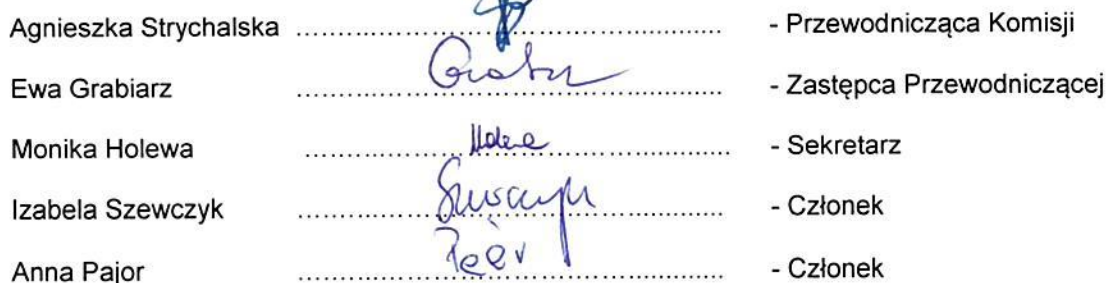 Agnieszka Strychalska ........................................................................ - Przewodnicząca Komisji
Ewa Grabiarz ........................................................................ - Zastępca Przewodniczącej
Monika Holewa ........................................................................ - Sekretarz
Izabela Szewczyk ........................................................................ - Członek
Anna Pajor ........................................................................ - Członek